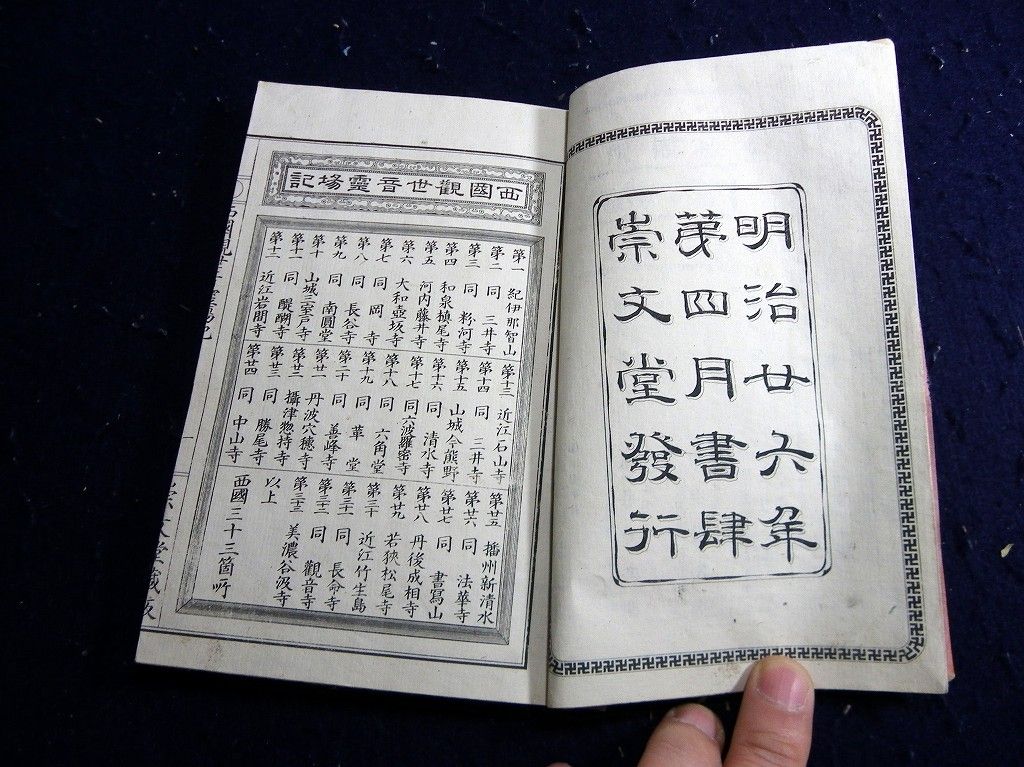 明治廿六年
苐四月書肆
崇文堂發行
西國觀世音靈場記
第一 紀伊那智山
第二 同 三井寺
第三 同 粉河寺
第四 和泉槙尾寺
第五 河内藤井寺
第六 大和壺坂寺
第七 同 岡寺
第八 同 長谷寺
第九 同 南圓堂
第十 山城三室戸寺
第十一 同 醍醐寺
第十二 近江岩間寺
第十三 近江石山寺
第十四 同 三井寺
第十五 山城今熊野
第十六 同 清水寺
第十七 同六波羅密寺
第十八 同 六角堂
第十九 同 革堂
第二十 同 善峰寺
第廿一 丹波穴穂寺
第廿二 攝津惣持寺
第廿三 同 勝尾寺
第廿四 同 中山寺
第廿五 播州新清水
第廿六 同 法華寺
第廿七 同 書寫山
第廿八 丹後成相寺
第廿九 若狹松尾寺
第三十 近江竹生島
第三十一 同 長命寺
第三十二 同 觀音寺
第三十三 美濃谷汲寺
以上
西國三十三箇所